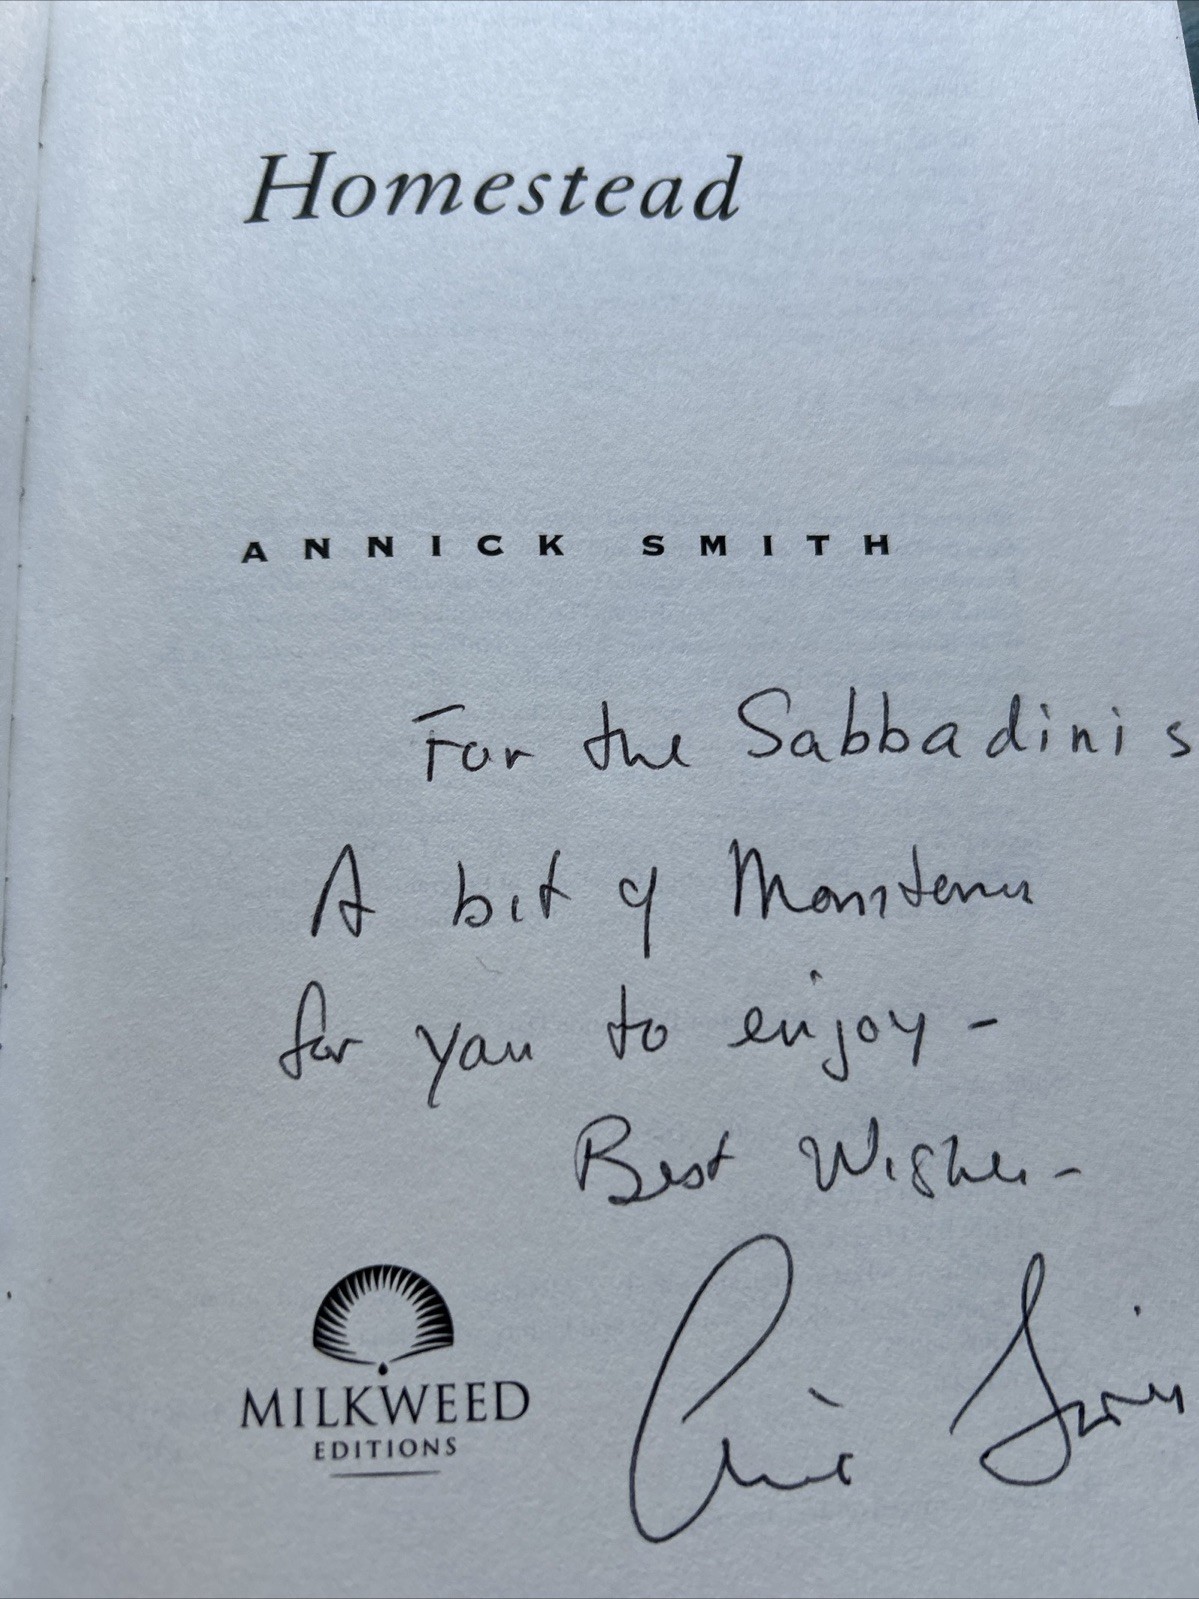 Homestead
ANNICK SMITH
For the Sabbadinis
A bit of Montana
for you to enjoy -
Best Wishes -
Annick Smith
MILKWEED
EDITIONS